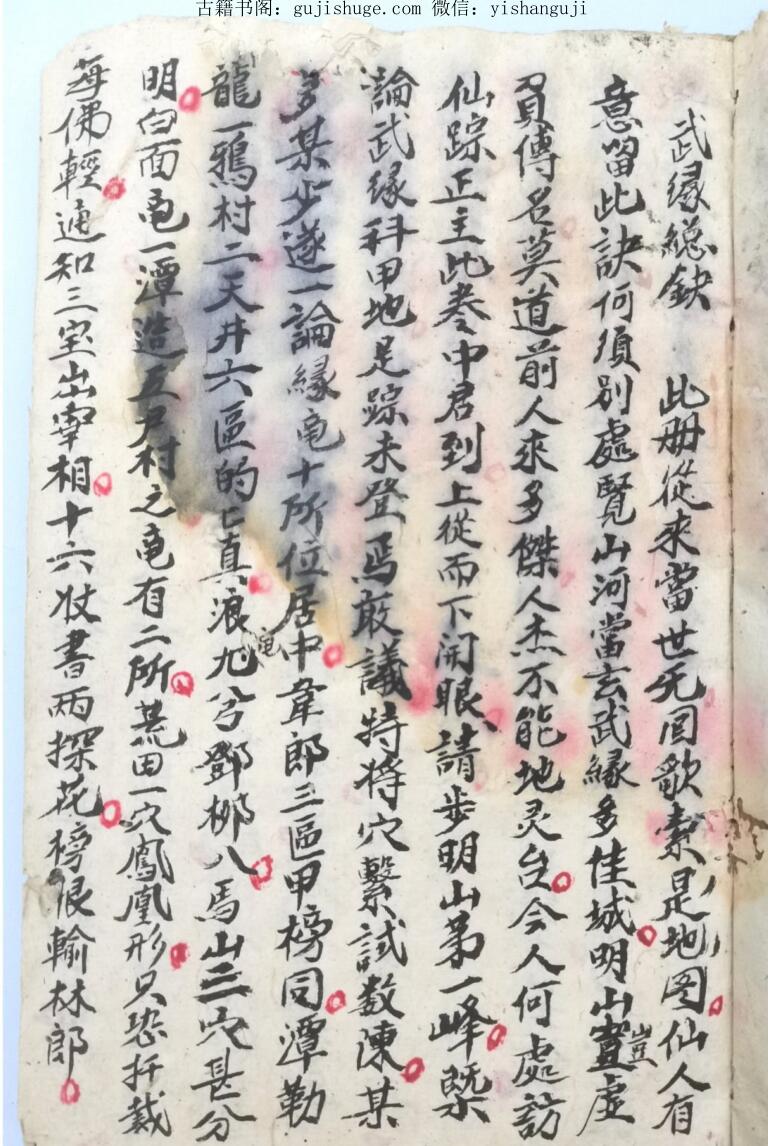 古籍书阁：gujishuge.com 微信：yishanguji
武缘總鈌　此册從來當世无回歌索是地图仙人有
意留此訣何須别處覽山河當玄武緣多佳城明山豈虚
負傳名莫道前人來多傑人杰不能地灵台今人何處訪
仙踪正主此卷中君到上從而下開眼請步明山第一峰既
論武緣科甲地是踪未登焉敢議特将穴繫試数陳某
多某少遂一論緣黽十所位居中韋郎三區甲榜同潭勒
龍一鴉村二天井六區的is真浪九兮鄧柳八馬山三穴甚分
明白面黽一潭造五尸村之黽有二所荒田一穴鳳凰形只恐扦裁
每佛輕通知三宝出宰相十六状書两探花榜眼輸林郎